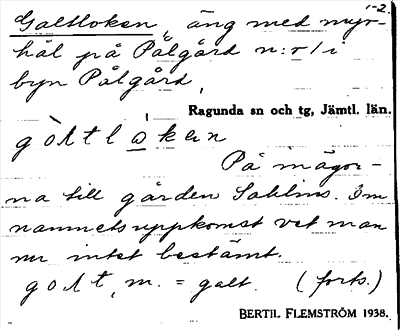 1-2.
Galtloken, äng med myr-
hål på Pålgård n:r 1 i
byn Pålgård,
Ragunda sn och tg, Jämtl. län.
På ägor-
na till gården Sahlins. Om
namnets uppkomst vet man
nu intet bestämt.
m. = galt. (forts.)
BERTIL FLEMSTRÖM 1938.